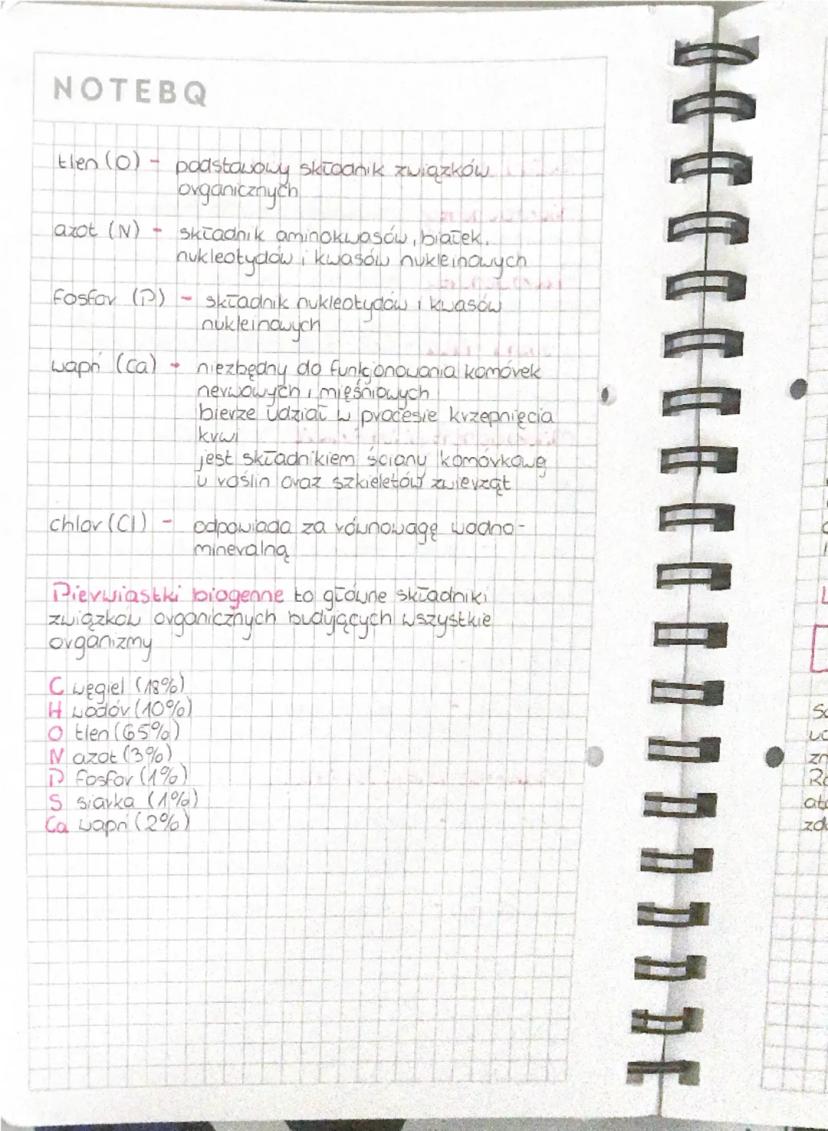 NOTEBQ
tlen (O) - podstawowy składnik związków
organicznych
azot (N) - składnik aminokwasów, białek,
nukleotydów i kwasów nukleinowych
fosfor (P) - składnik nukleotydów i kwasów
nukleinowych
wapń (Ca) - niezbędny do funkcjonowania komórek
nerwowych i mięśniowych
bierze udział w procesie krzepnięcia
krwi
jest składnikiem ściany komórkowej
u roślin oraz szkieletów zwierząt
chlor (Cl) - odpowiada za równowagę wodno-
mineralną
Pierwiastki biogenne to główne składniki
związków organicznych budujących wszystkie
organizmy
C węgiel (18%)
H wodór (10%)
O tlen (65%)
N azot (3%)
P fosfor (1%)
S siarka (1%)
Ca wapń (2%)